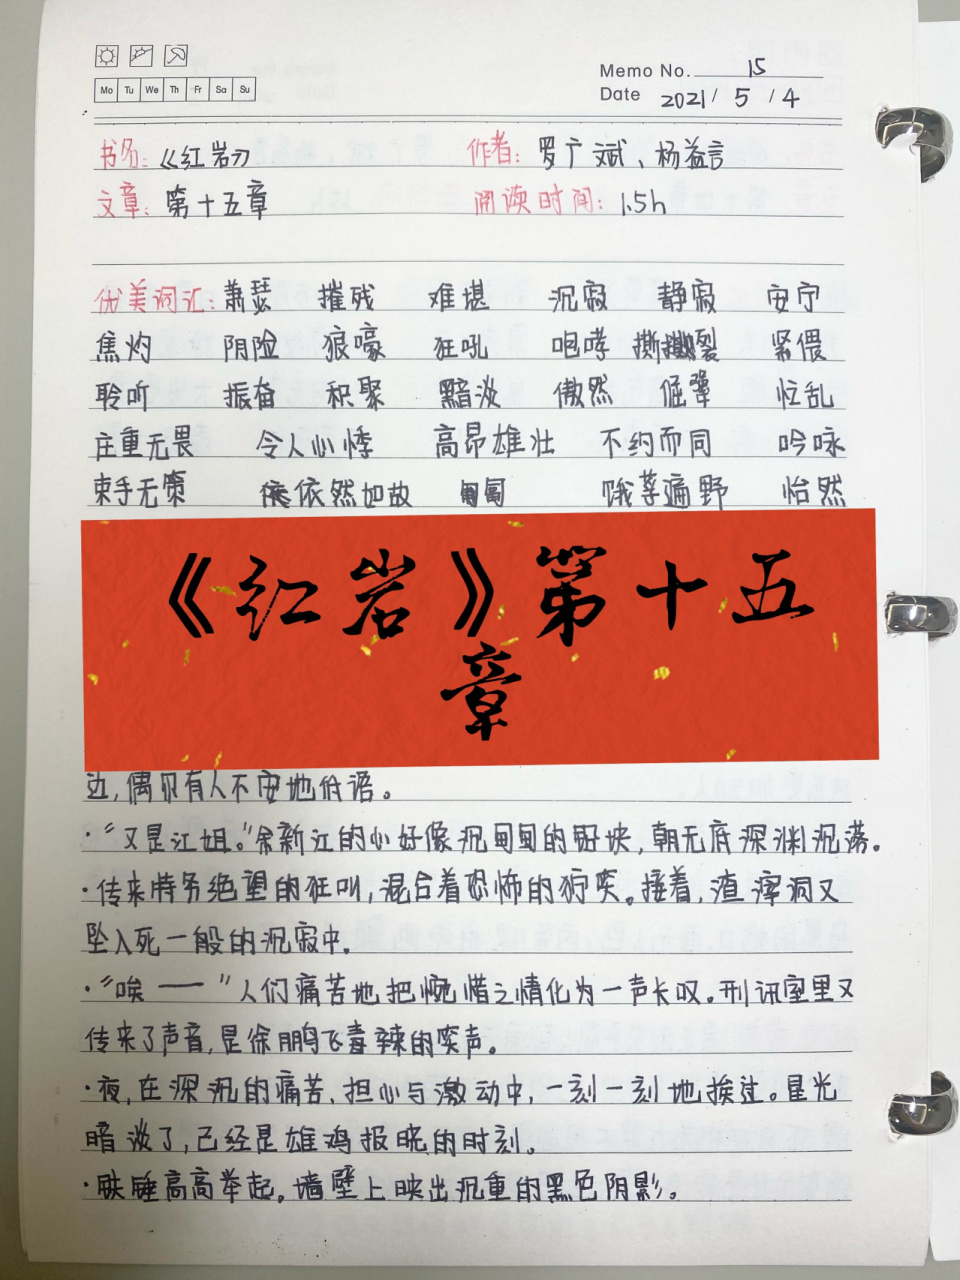 Mo Tu We Th Fr Sa Su
Memo No. 15
Date 2021/ 5 /4
书名:《红岩》 作者: 罗广斌、杨益言
文章: 第十五章 阅读时间: 1.5h
优美词汇: 萧瑟 摧残 难堪 沉寂 静寂 安宁
焦灼 阴险 狼嚎 狂吼 咆哮 撕裂 紧偎
聆听 振奋 积聚 黯淡 傲然 倔犟 忙乱
庄重无畏 令人心悸 高昂雄壮 不约而同 吟咏
束手无策 依然如故 饿莩遍野 怡然
《红岩》第十五
章
边,偶尔有人不安地低语。
·“又是江姐。”余新江的心好像沉甸甸的铅块,朝无底深渊沉落。
·传来特务绝望的狂叫,混合着恐怖的狞笑。接着,渣滓洞又
坠入死一般的沉寂中。
·“唉 —— ”人们痛苦地把惋惜之情化为一声长叹。刑讯室里又
传来了声音,是徐鹏飞毒辣的笑声。
·夜,在深沉的痛苦、担心与激动中,一刻一刻地挨过。星光
暗淡了,已经是雄鸡报晓的时刻。
·铁锤高高举起。墙壁上映出沉重的黑色阴影。